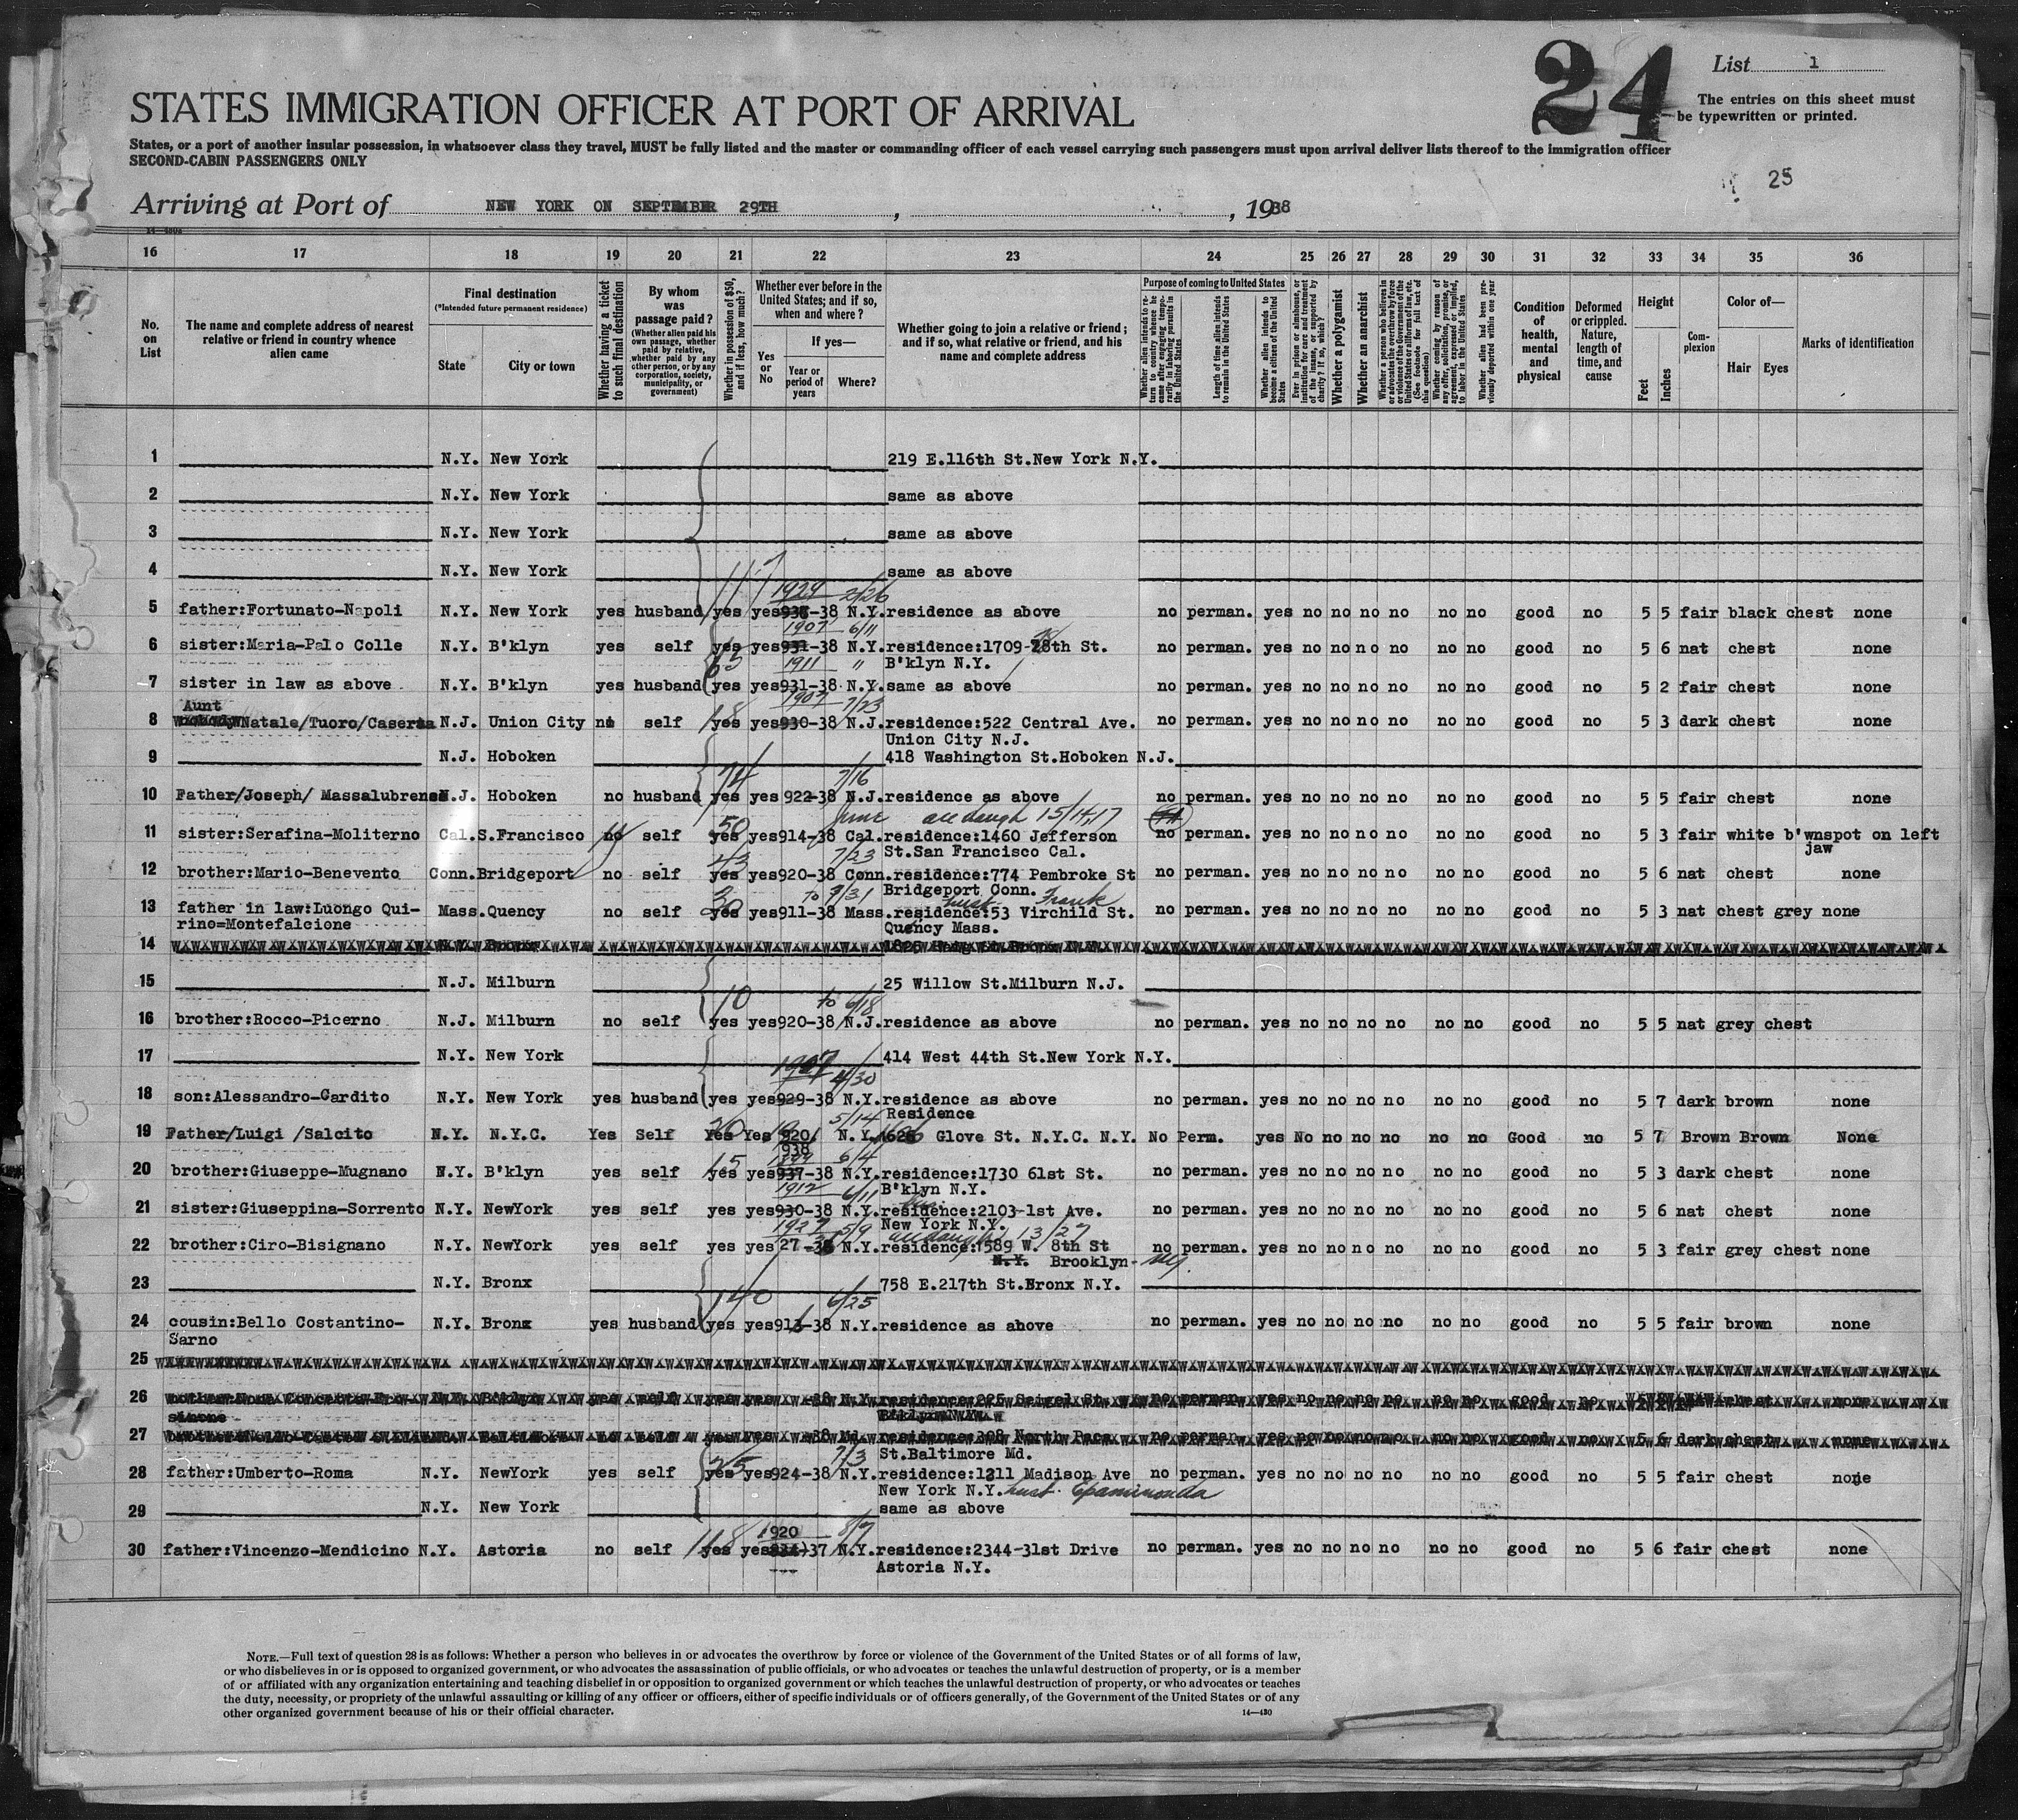 24
List 1
The entries on this sheet must
be typewritten or printed.
STATES IMMIGRATION OFFICER AT PORT OF ARRIVAL
States, or a port of another insular possession, in whatsoever class they travel, MUST be fully listed and the master or commanding officer of each vessel carrying such passengers must upon arrival deliver lists thereof to the immigration officer
SECOND-CABIN PASSENGERS ONLY
25
Arriving at Port of NEW YORK ON SEPTEMBER 29TH , , 1938
16 17 18 19 20 21 22 23 24 25 26 27 28 29 30 31 32 33 34 35 36
No. on List
The name and complete address of nearest relative or friend in country whence alien came
Final destination
(*Intended future permanent residence)
State
City or town
Whether having a ticket to such final destination
By whom was passage paid?
(Whether alien paid his own passage, whether paid by relative, whether paid by any other person, or by any corporation, society, municipality, or government)
Whether in possession of $50, and if less, how much?
Whether ever before in the United States; and if so, when and where?
Yes or No
If yes—
Year or period of years
Where?
Whether going to join a relative or friend; and if so, what relative or friend, and his name and complete address
Purpose of coming to United States
Whether alien intends to return to country whence he came after engaging temporarily in laboring pursuits in the United States
Length of time alien intends to remain in the United States
Whether alien intends to become a citizen of the United States
Ever in prison or almshouse, or institution for care and treatment of the insane, or supported by charity? If so, which?
Whether a polygamist
Whether an anarchist
Whether a person who believes in or advocates the overthrow by force or violence of the Government of the United States or all forms of law, etc. (See footnote for full text of this question)
Whether coming by reason of any offer, solicitation, promise, or agreement, expressed or implied, to labor in the United States
Whether alien had been previously deported within one year
Condition of health, mental and physical
Deformed or crippled. Nature, length of time, and cause
Height
Feet
Inches
Complexion
Color of—
Hair Eyes
Marks of identification
1 N.Y. New York 219 E.116th St.New York N.Y.
2 N.Y. New York same as above
3 N.Y. New York same as above
4 N.Y. New York same as above
1924 2/26
5 father:Fortunato-Napoli N.Y. New York yes husband yes yes -38 N.Y. residence as above no perman. yes no no no no no no good no 5 5 fair black chest none
1907 6/11
6 sister:Maria-Palo Colle N.Y. B'klyn yes self yes yes 931-38 N.Y. residence:1709- 8th St. no perman. yes no no no no no no good no 5 6 nat chest none
1911 " B'klyn N.Y.
7 sister in law as above N.Y. B'klyn yes husband yes yes 931-38 N.Y. same as above no perman. yes no no no no no no good no 5 2 fair chest none
Aunt 1907 7/23
8 Natale/Tuoro/Caserta N.J. Union City no self yes yes 930-38 N.J. residence:522 Central Ave. no perman. yes no no no no no no good no 5 3 dark chest none
Union City N.J.
9 N.J. Hoboken 418 Washington St.Hoboken N.J.
74 7/16
10 Father/Joseph/ Massalubrense N.J. Hoboken no husband yes yes 922-38 N.J. residence as above no perman. yes no no no no no no good no 5 5 fair chest none
50 June
11 sister:Serafina-Moliterno Cal. S.Francisco no self yes yes 914-38 Cal. residence:1460 Jefferson no perman. yes no no no no no no good no 5 3 fair white b'wnspot on left
jaw
7/23 St.San Francisco Cal.
12 brother:Mario-Benevento Conn. Bridgeport no self yes yes 920-38 Conn. residence:774 Pembroke St no perman. yes no no no no no no good no 5 6 nat chest none
30 to 7/31 Bridgeport Conn.
hust Frank
13 father in law:Luongo Qui- Mass. Quency no self yes yes 911-38 Mass. residence:53 Virchild St. no perman. yes no no no no no no good no 5 3 nat chest grey none
rino=Montefalcione Quency Mass.
14
15 N.J. Milburn 25 Willow St.Milburn N.J.
10 to 6/18
16 brother:Rocco-Picerno N.J. Milburn no self yes yes 920-38 N.J. residence as above no perman. yes no no no no no no good no 5 5 nat grey chest
17 N.Y. New York 414 West 44th St.New York N.Y.
4/30
18 son:Alessandro-Cardito N.Y. New York yes husband yes yes 929-38 N.Y. residence as above no perman. yes no no no no no no good no 5 7 dark brown none
5/14 Residence
19 Father/Luigi /Salcito N.Y. N.Y.C. Yes Self Yes Yes 920/ N.Y. Glove St. N.Y.C. N.Y. No Perm. yes No no no no no no Good no 5 7 Brown Brown None
938
15 6/4
20 brother:Giuseppe-Mugnano N.Y. B'klyn yes self yes yes 937-38 N.Y. residence:1730 61st St. no perman. yes no no no no no no good no 5 3 dark chest none
1912 6/11 B'klyn N.Y.
21 sister:Giuseppina-Sorrento N.Y. NewYork yes self yes yes 930-38 N.Y. residence:2103-1st Ave. no perman. yes no no no no no no good no 5 6 nat chest none
1927 5/9 New York N.Y.
22 brother:Ciro-Bisignano N.Y. NewYork yes self yes yes 27-38 N.Y. residence:1589 W. 8th St no perman. yes no no no no no no good no 5 3 fair grey chest none
N.Y. Brooklyn-
23 N.Y. Bronx 758 E.217th St.Bronx N.Y.
140 6/25
24 cousin:Bello Costantino- N.Y. Bronx yes husband yes yes 913-38 N.Y. residence as above no perman. yes no no no no no no good no 5 5 fair brown none
Sarno
25
26 N.Y. B'klyn yes self yes yes -38 N.Y. residence:225 Seigel St. no perman. yes no no no no no no good no chest none
simone B'klyn N.Y.
27 yes -38 Md. residence:308 North no perman. yes no no no no no no good no 5 6 dark chest none
7/3 St.Baltimore Md.
28 father:Umberto-Roma N.Y. NewYork yes self yes yes 924-38 N.Y. residence:1211 Madison Ave no perman. yes no no no no no no good no 5 5 fair chest none
New York N.Y. hust. Epaminonda
29 N.Y. New York same as above
1920 8/7
30 father:Vincenzo-Mendicino N.Y. Astoria no self yes yes -37 N.Y. residence:2344-31st Drive no perman. yes no no no no no no good no 5 6 fair chest none
Astoria N.Y.
NOTE.—Full text of question 28 is as follows: Whether a person who believes in or advocates the overthrow by force or violence of the Government of the United States or of all forms of law,
or who disbelieves in or is opposed to organized government, or who advocates the assassination of public officials, or who advocates or teaches the unlawful destruction of property, or is a member
of or affiliated with any organization entertaining and teaching disbelief in or opposition to organized government or which teaches the unlawful destruction of property, or who advocates or teaches
the duty, necessity, or propriety of the unlawful assaulting or killing of any officer or officers, either of specific individuals or of officers generally, of the Government of the United States or of any
other organized government because of his or their official character.
14—430